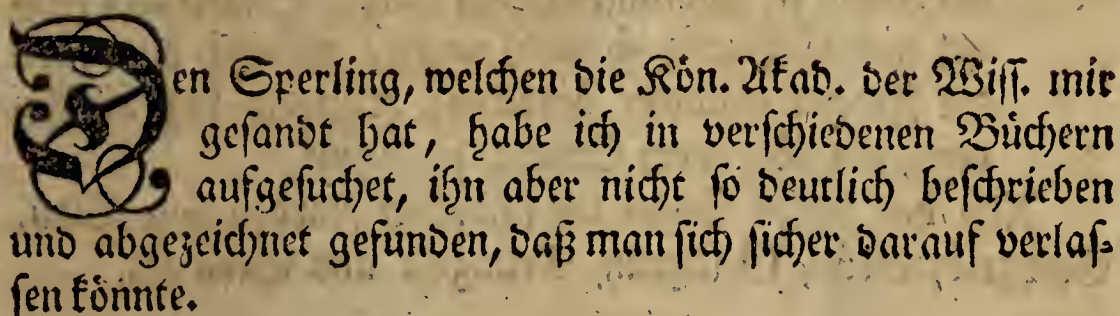 Den Sperling, welchen die Kön. Akad. der Wiss. mir
gesandt hat, habe ich in verschiedenen Büchern
aufgesuchet, ihn aber nicht so deutlich beschrieben
und abgezeichnet gefunden, daß man sich sicher darauf verlas-
sen könnte.